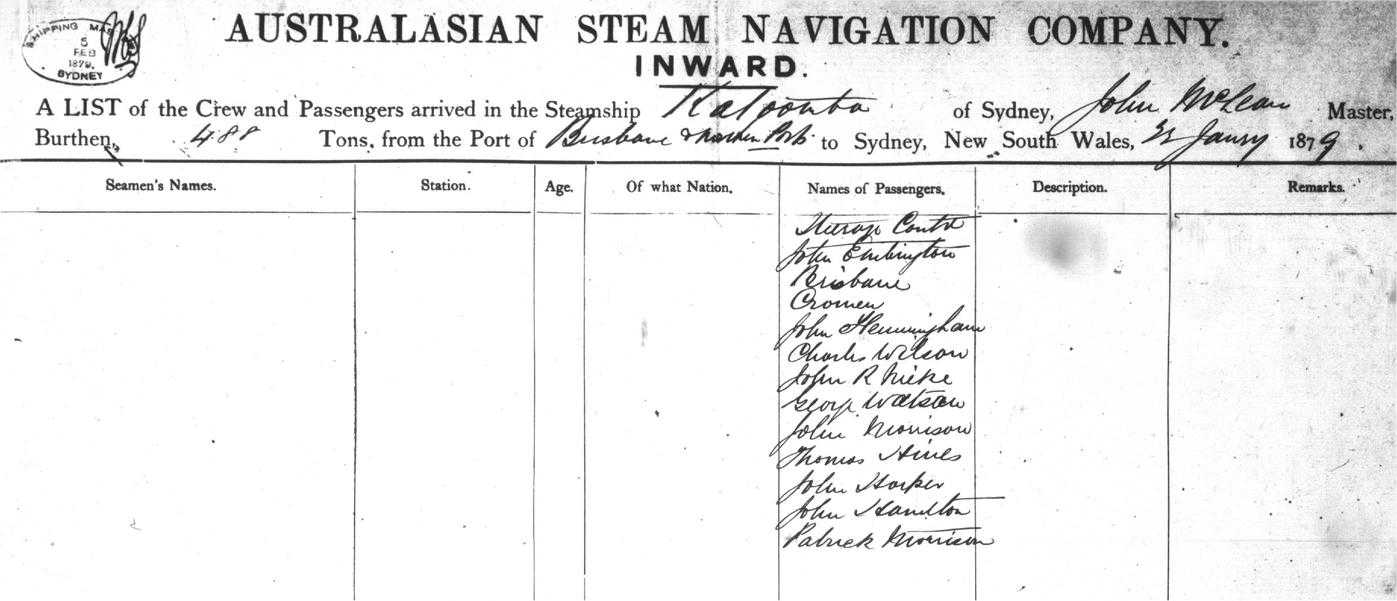 SHIPPING MAS
5
FEB
1879.
SYDNEY
AUSTRALASIAN STEAM NAVIGATION COMPANY.
INWARD.
A LIST of the Crew and Passengers arrived in the Steamship Katoomba of Sydney, John McLean Master,
Burthen, 488 Tons, from the Port of Brisbane & to Sydney, New South Wales, Janry 1879.
Seamen's Names. Station. Age. Of what Nation. Names of Passengers. Description. Remarks.
Steerage Contd
John Embington
Brisbane
Cromen
John Henningham
Charles Wilson
John R
George Watson
John Morrison
Thomas Hines
John Harper
John Hamilton
Patrick Morrison